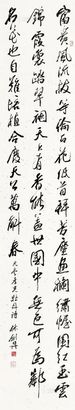 富貴風流拔等倫百花低首拜芳塵畫欄繡幄圍紅玉雲
錦霞裳蹋翠裀天上有香能蓋世國中無色可為鄰
名花也自難培植合費天工萬斛春